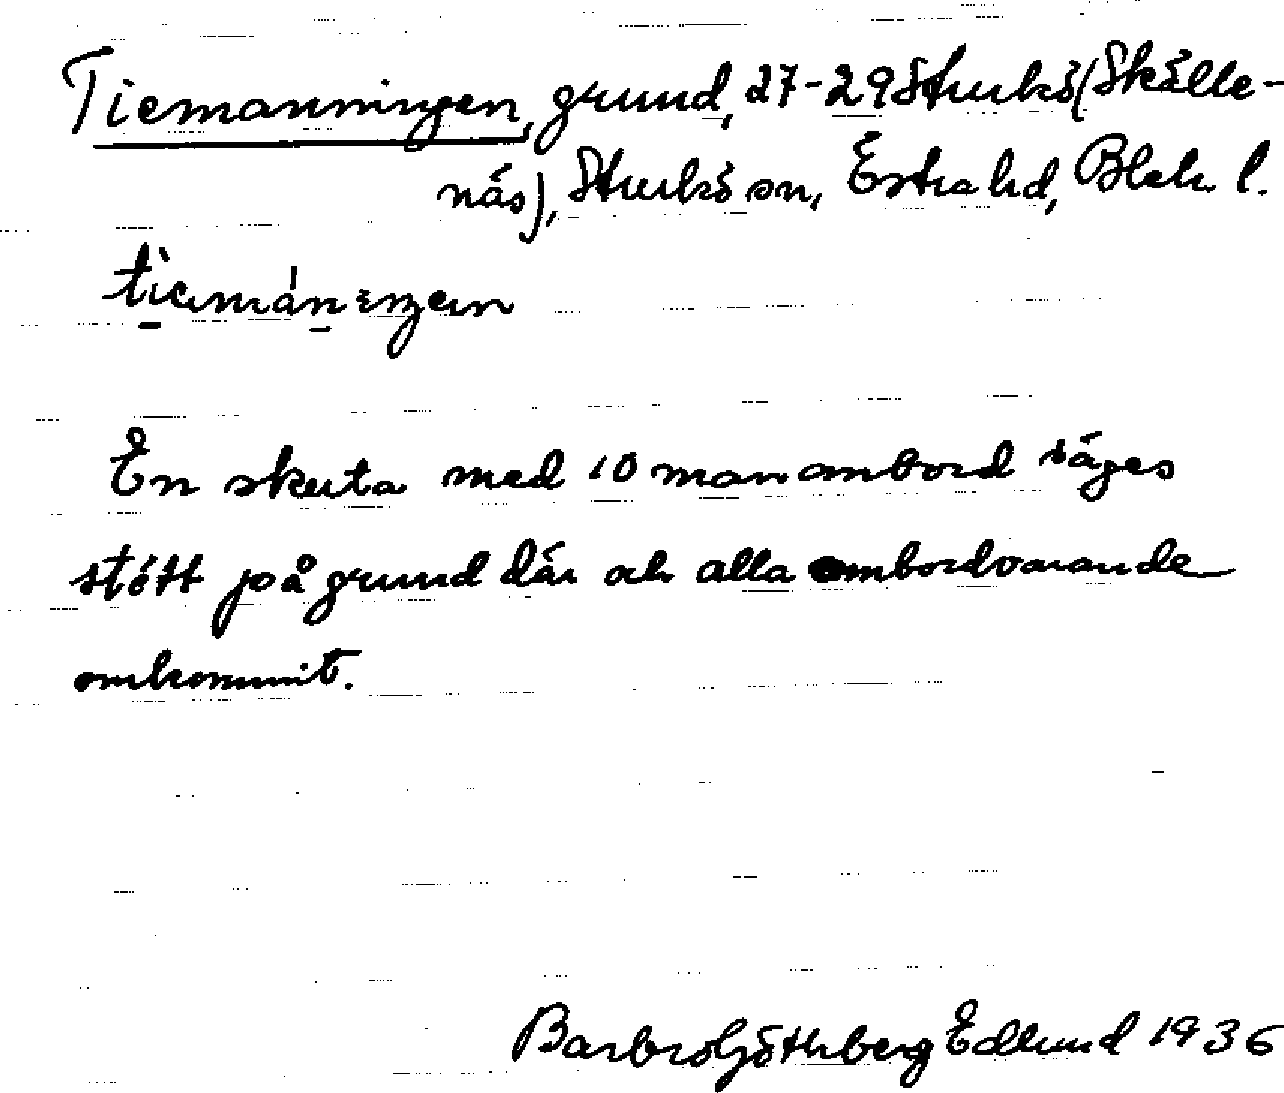 Tiemanningen, grund, 27-29 Sturkö (Skälle-
näs), Sturkö sn, Östra hd, Blek. l.
En skuta med 10 man ombord säges
stött på grund där och alla ombordvarande
omkommit.
Barbro Götherberg Edlund 1936